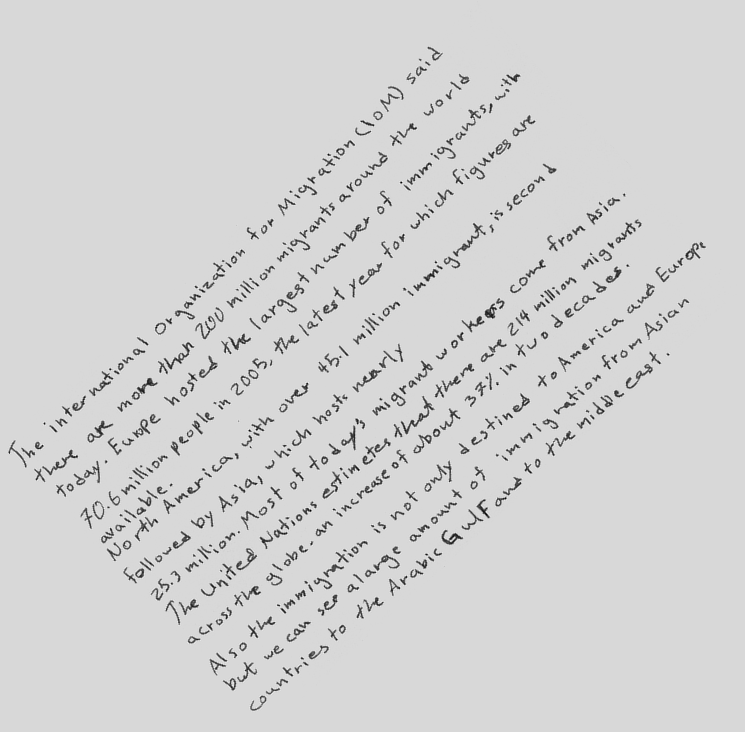 The international Organization for Migration (IOM) said
there are more than 200 million migrants around the world
today. Europe hosted the largest number of immigrants, with
70.6 million people in 2005, the latest year for which figures are
available.
North America, with over 45.1 million immigrant, is second
followed by Asia, which hosts nearly
25.3 million. Most of today's migrant workers come from Asia.
The United Nations estimetes that there are 214 million migrants
across the globe. an increase of about 37% in two decades.
Also the immigration is not only destined to America and Europe
but we can see a large amount of immigration from Asian
countries to the Arabic Gulf and to the middle east.